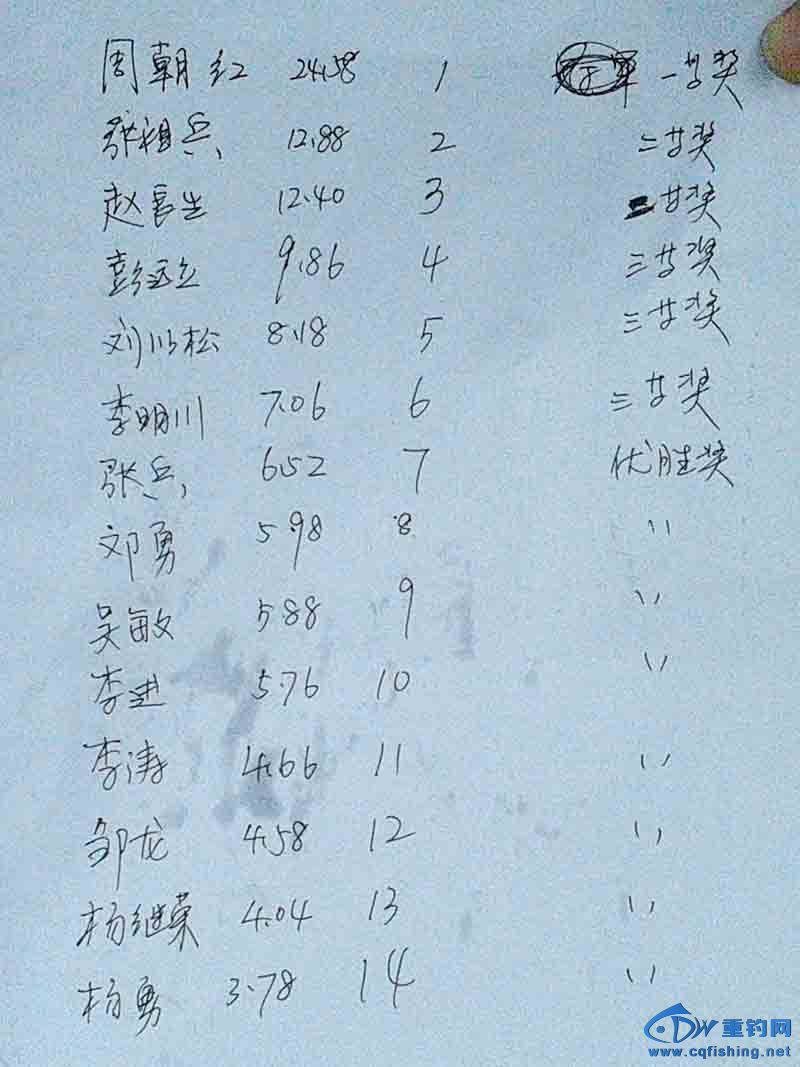 周朝红 24.58 1 一等奖
张祖兵 12.88 2 二等奖
赵良生 12.40 3 二等奖
彭远立 9.86 4 三等奖
刘小松 8.18 5 三等奖
李明川 7.06 6 三等奖
张兵 6.52 7 优胜奖
邓勇 5.98 8 〃
吴敏 5.88 9 〃
李进 5.76 10 〃
李涛 4.66 11 〃
邹龙 4.58 12 〃
杨继荣 4.04 13 〃
杨勇 3.78 14 〃
重钓网
www.cqfishing.net